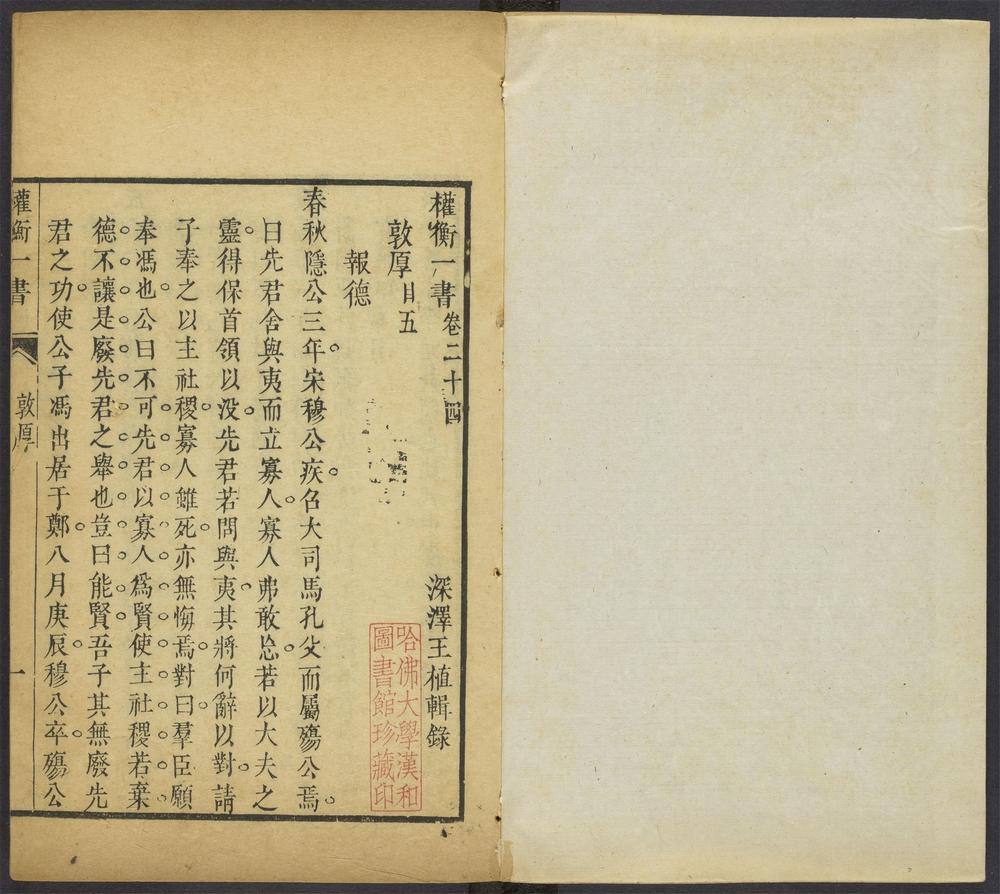 權衡一書卷二十四 深澤王植輯錄
敦厚目五
報德
春秋隱公三年宋穆公疾召大司馬孔父而屬殤公焉
曰先君舍與夷而立寡人寡人弗敢忘若以大夫之
靈得保首領以没先君若問與夷其將何辭以對請
子奉之以主社稷寡人雖死亦無悔焉對曰羣臣願
奉馮也公曰不可先君以寡人爲賢使主社稷若棄
德不讓是廢先君之舉也豈曰能賢吾子其無廢先
君之功使公子馮出居于鄭八月庚辰穆公卒殤公
權衡一書 敦厚 一
哈佛大學漢和
圖書館珍藏印